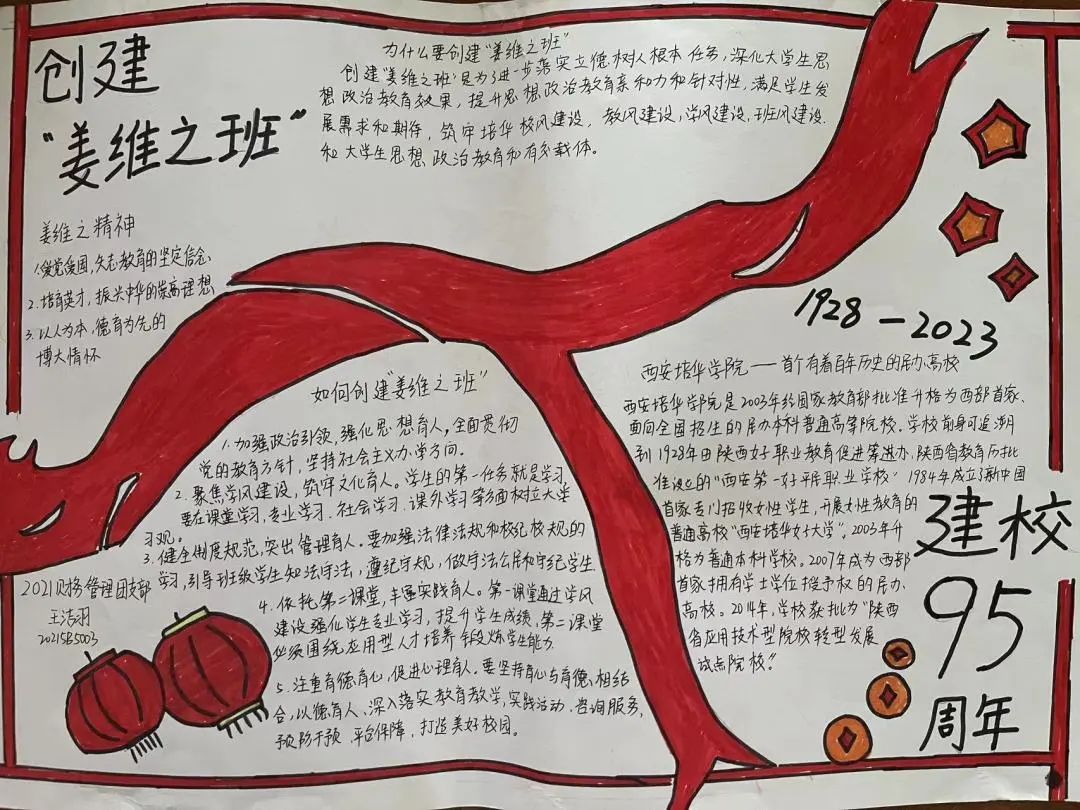 创建
"姜维之班"
为什么要创建"姜维之班"
创建"姜维之班"是为了进一步落实立德树人根本任务，深化大学生思
想政治教育效果，提升思想政治教育亲和力和针对性，满足学生发
展需求和期待，筑牢培华校风建设，教风建设，学风建设，班风建设
和大学生思想政治教育和有效载体。
姜维之精神
1.爱党爱国，矢志教育的坚定信念
2.培育英才，振兴中华的崇高理想
3.以人为本，德育为先的
博大情怀
如何创建"姜维之班"
1.加强政治引领，强化思想育人，全面贯彻
党的教育方针，坚持社会主义办学方向。
2.聚焦学风建设，筑牢文化育人。学生的第一任务就是学习，
要在课堂学习，专业学习、社会学习、课外学习等多面树立大学
习观。
3.健全制度规范，突出管理育人。要加强法律法规和校纪校规的
学习，引导班级学生知法守法，遵纪守规，做守法公民和守纪学生
4.依托第二课堂，丰富实践育人。第一课堂通过学风
建设强化学生专业学习，提升学生成绩，第二课堂
必须围绕应用型人才培养锻炼学生能力.
5.注重育德育心，促进心理育人。要坚持育心与育德相结
合，以德育人，深入落实教育教学，实践活动、咨询服务，
预防干预、平台保障，打造美好校园。
2021财务管理团支部
王浩羽
2021585003
1928—2023
西安培华学院——首个有着百年历史的民办高校
西安培华学院是2003年经国家教育部批准升格为西部首家、
面向全国招生的民办本科普通高等院校。学校前身可追溯
到1928年由陕西女子职业教育促进筹进办，陕西省教育厅批
准设立的"西安第一女子平民职业学校"1984年成立新中国
首家专门招收女性学生，开展女性教育的
普通高校"西安培华女子大学"。2003年升
格为普通本科学校。2007年成为西部
首家拥有学士学位授予权的民办
高校。2014年，学校获批为"陕西
省应用技术型院校转型发展
试点院校"。
建校
95
周年